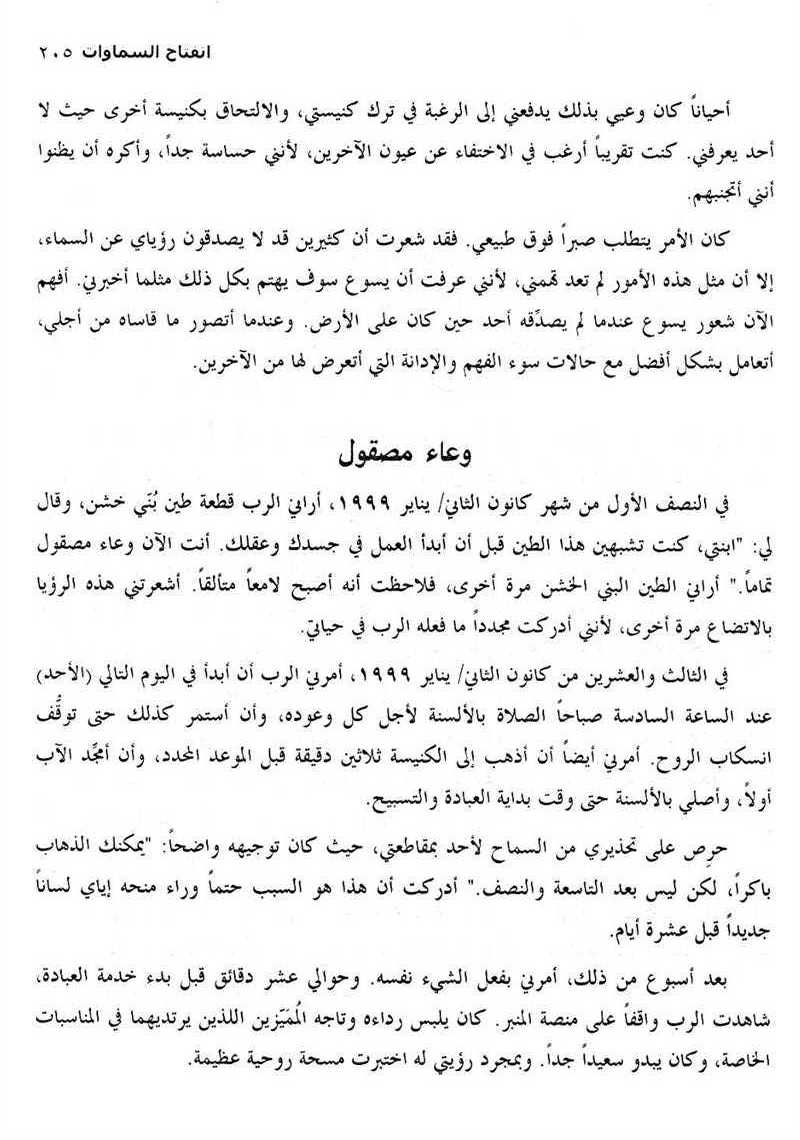 انفتاح السماوات ٢٠٥
أحياناً كان وعيي بذلك يدفعني إلى الرغبة في ترك كنيستي، والالتحاق بكنيسة أخرى حيث لا
أحد يعرفني. كنت تقريباً أرغب في الاختفاء عن عيون الآخرين، لأنني حساسة جداً، وأكره أن يظنوا
أنني أتجنبهم.
كان الأمر يتطلب صبراً فوق طبيعي. فقد شعرت أن كثيرين قد لا يصدقون رؤياي عن السماء،
إلا أن مثل هذه الأمور لم تعد تهمني، لأنني عرفت أن يسوع سوف يهتم بكل ذلك مثلما أخبرني. أفهم
الآن شعور يسوع عندما لم يصدِّقه أحد حين كان على الأرض. وعندما أتصور ما قاساه من أجلي،
أتعامل بشكل أفضل مع حالات سوء الفهم والإدانة التي أتعرض لها من الآخرين.
وعاء مصقول
في النصف الأول من شهر كانون الثاني/ يناير ١٩٩٩، أراني الرب قطعة طين بُنّي خشن، وقال
لي: "ابنتي، كنت تشبهين هذا الطين قبل أن أبدأ العمل في جسدك وعقلك. أنت الآن وعاء مصقول
تماماً." أراني الطين البني الخشن مرة أخرى، فلاحظت أنه أصبح لامعاً متألقاً. أشعرتني هذه الرؤيا
بالاتضاع مرة أخرى، لأنني أدركت مجدداً ما فعله الرب في حياتي.
في الثالث والعشرين من كانون الثاني/ يناير ١٩٩٩، أمرني الرب أن أبدأ في اليوم التالي (الأحد)
عند الساعة السادسة صباحاً الصلاة بالألسنة لأجل كل وعوده، وأن أستمر كذلك حتى توقُّف
انسكاب الروح. أمرني أيضاً أن أذهب إلى الكنيسة ثلاثين دقيقة قبل الموعد المحدد، وأن أمجِّد الآب
أولاً، وأصلي بالألسنة حتى وقت بداية العبادة والتسبيح.
حرِص على تحذيري من السماح لأحد بمقاطعتي، حيث كان توجيهه واضحاً: "يمكنك الذهاب
باكراً، لكن ليس بعد التاسعة والنصف." أدركت أن هذا هو السبب حتماً وراء منحه إياي لساناً
جديداً قبل عشرة أيام.
بعد أسبوع من ذلك، أمرني بفعل الشيء نفسه. وحوالي عشر دقائق قبل بدء خدمة العبادة،
شاهدت الرب واقفاً على منصة المنبر. كان يلبس رداءه وتاجه المُمَيّزين اللذين يرتديهما في المناسبات
الخاصة، وكان يبدو سعيداً جداً. وبمجرد رؤيتي له اختبرت مسحة روحية عظيمة.